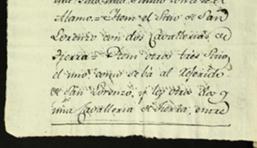 Alamo = Ytem el Sitio de San
Lorenzo con dos Cavallerias de
tierra = Ytem otros tres Sitios
el uno como se ba al referido
de San Lorenzo, y los otros dos y
una Cavalleria de tierra, entre